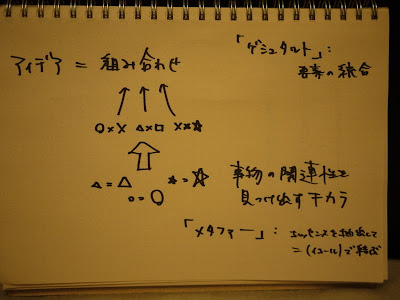 「ゲシュタルト」:
要素の統合
アイデア = 組み合わせ
○×× △×□ ××☆
△=△ ○=○ ☆=☆
事物の関連性を
見つけ出すチカラ
「メタファー」: エッセンスを抽出して
= (イコール)で結ぶ